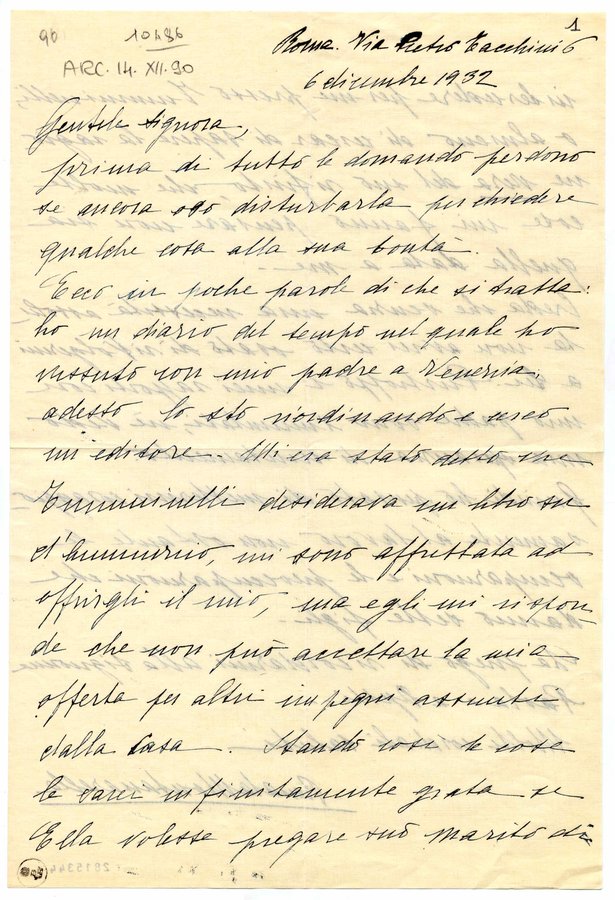 90
10486
ARC. 14. XII. 90
1
Roma. Via Pietro Tacchini 6
6 dicembre 1932
Gentile Signora,
prima di tutto le domando perdono
se ancora oso disturbarla per chiedere
qualche cosa alla sua bontà.
Ecco in poche parole di che si tratta:
ho un diario del tempo nel quale ho
vissuto con mio padre a Venezia,
adesso lo sto riordinando e cerco
un editore. Mi era stato detto che
Tumminelli desiderava un libro su
d'Annunzio, mi sono affrettata ad
offrirgli il mio, ma egli mi rispon-
de che non può accettare la mia
offerta per altri impegni assunti
dalla Casa. Stando così le cose
le sarei infinitamente grata se
Ella volesse pregare suo marito di